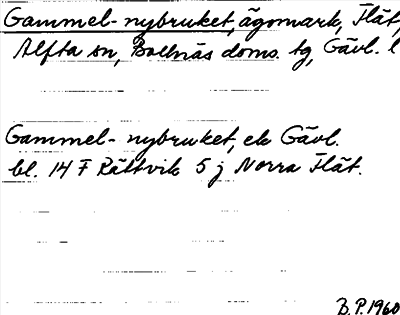 Gammel-nybruket, ägomark, Flät,
Alfta sn, Bollnäs doms. tg, Gävl. l
Gammel-nybruket, ek Gävl.
bl. 14 F Rättvik 5 j Norra Flät.
B.P. 1960